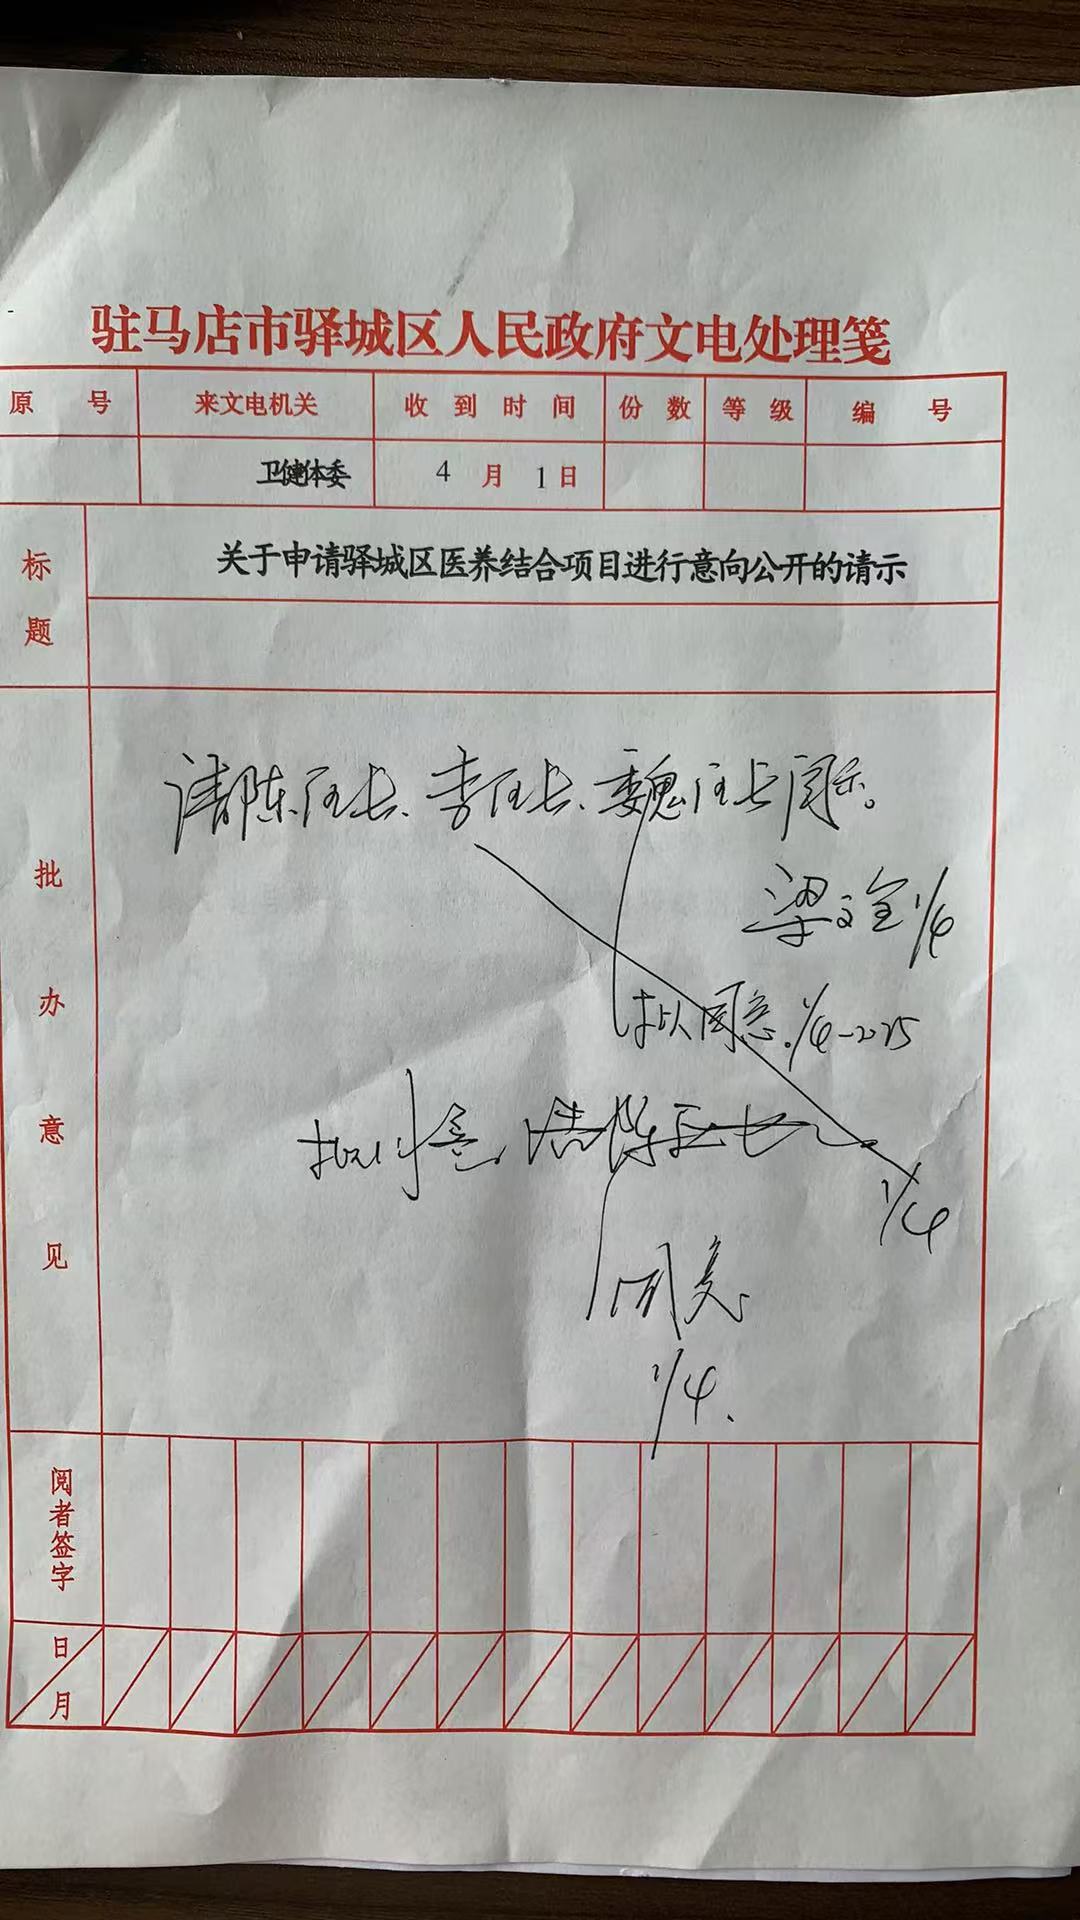 驻马店市驿城区人民政府文电处理笺
原 号 来文电机关 收到时间 份数 等级 编 号
卫健体委 4月1日
标题 关于申请驿城区医养结合项目进行意向公开的请示
批办意见
请陈区长、李区长、魏区长阅示。
梁文全 1/4
拟同意. 1/4-2025
拟同意,请陈区长
1/4
同意
1/4.
阅者签字
日
月